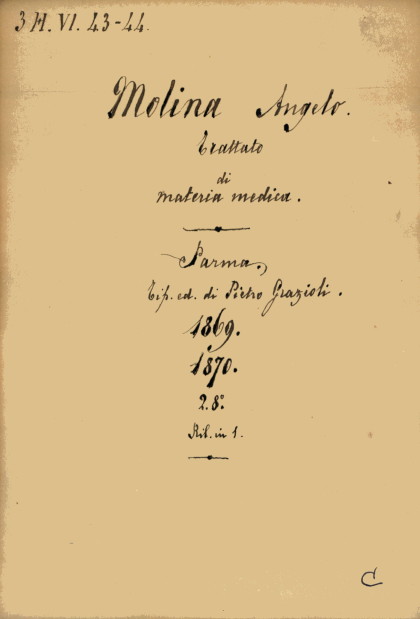 3 H. VI. 43-44.
Molina Angelo.
Trattato
di
materia medica.
Parma,
Tip. ed. di Pietro Grazioli.
1869.
1870.
2. 8°.
Ril. in 1.
C